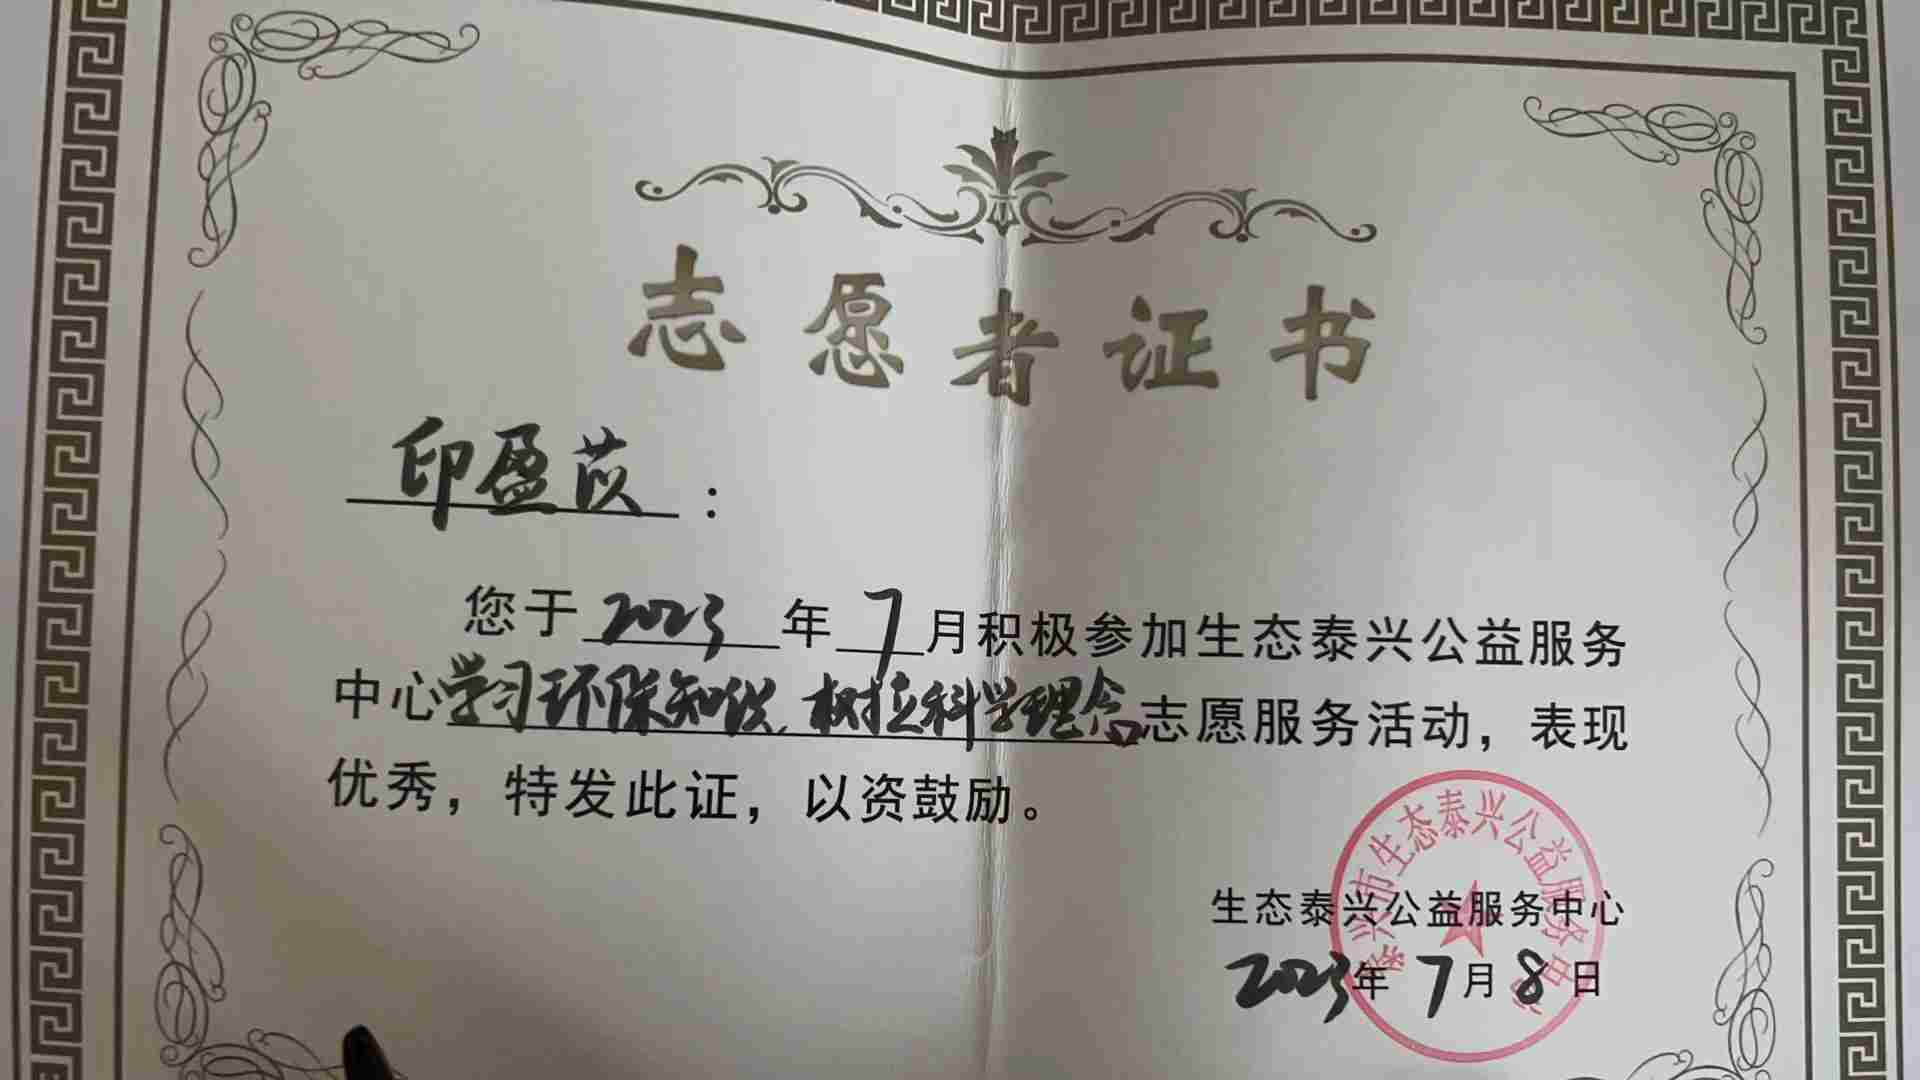 志愿者证书
印盈苡：
您于2023年7月积极参加生态泰兴公益服务
中心学习环保知识、树立科学理念志愿服务活动，表现
优秀，特发此证，以资鼓励。
泰兴市生态泰兴公益服务中心
生态泰兴公益服务中心
2023年7月8日